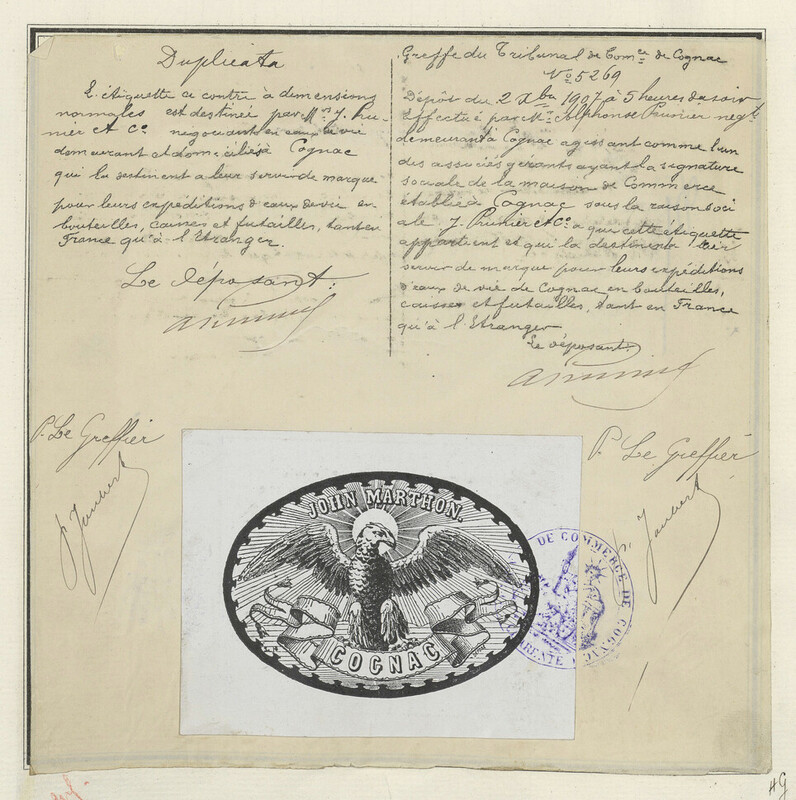 Duplicata
L'étiquette ci contre à dimensions
normales est destinée par Mrs J. Pru-
nier et Co négociants en eaux de vie
demeurant et domiciliés à Cognac
qui la destinent a leur servir de marque
pour leurs expéditions d'eaux de vie en
bouteilles, caisses et futailles, tant en
France qu'à l'Etranger.
Le déposant:
Greffe du Tribunal de Comce de Cognac
No 5269
Dépôt du 2 Xbre 1907 à 5 heures du soir
Effectué par Mr Alphonse Prunier négt
demeurant à Cognac agissant comme l'un
des associés gérants ayant la signature
sociale de la maison de Commerce
établie à Cognac sous la raison soci
ale J. Prunier et Co à qui cette etiquette
appartient et qui la destinent a leur
servir de marque pour leurs expéditions
d'eaux de vie de Cognac en bouteilles,
caisses et futailles, tant en France
qu'à l'Etranger
Le déposant:
P. Le Greffier
Joubert
P. Le Greffier
Joubert
JOHN MARTHON.
COGNAC
DE COMMERCE DE COGNAC
HG